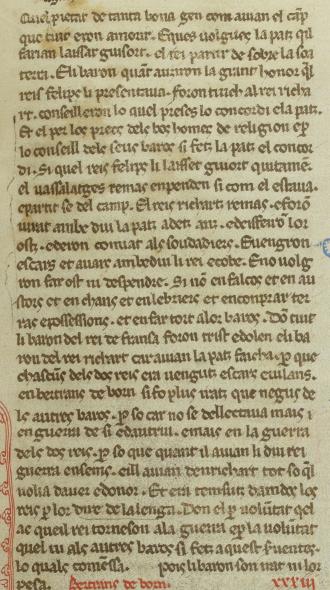 Quel pietar de tanta bona gen com auian el cāp
que tuit eron amorir. E ques uolgues la patz qil
farian laissar guisort. el rei partir de sobre la soa
terra. Eli baron quāt auziron la grant honor ql
reis felips li presentaua. foron tuich al rei richa
rt. conseilleron lo quel preses lo concordi ela patz.
Et el per los precs dels bos homes de religion ep̄
lo conseill dels seus baros si fetz la patz el concor
di. Si quel reis felips li laisset guiort quitamēt.
el uassalatges remas enpenden si com el estaua.
epartit se del camp. El reis richartz remas. eforō
iurat ambe dui la patz adetz anz. edesfeirō lor
ostz. ederon comiat als soudadiers. Euengron
escars et auars ambedui li rei ecobe. Eno uolg
ron far ost ni despendre. Si nō en falcos et en au
stors et en chans et en lebriers et en conprar ter
ras epossessions. et en far tort alor baros. Dō tuit
li baron del rei de fransa foron trist edolen eli ba
ron del rei richart car auian la patz faicha. p̄ que
chascuns dels dos reis era uengutz escars euilans.
en bertrans de born si fo plus iratz que negus de
ls autres baros. p̄ so car no se dellectaua mais
en guerra de si edautrui. emais en la guerra
dels dos reis. p̄ so que quant il auian li dui rei
guerra ensems. eill auian denrichart tot so ql
uolia dauer edonor. Et era temsutz damdos los
reis p̄ lor dire de la lenga. Don el p̄ uoluntat qel
ac queill rei torneson ala guerra ep̄ la uolūtat
quel ui als autres baros si fetz aquest siruentes.
lo quals comēssa. Pois li baron son irat ni lor
pesa. Bertrans de born. xxxiii